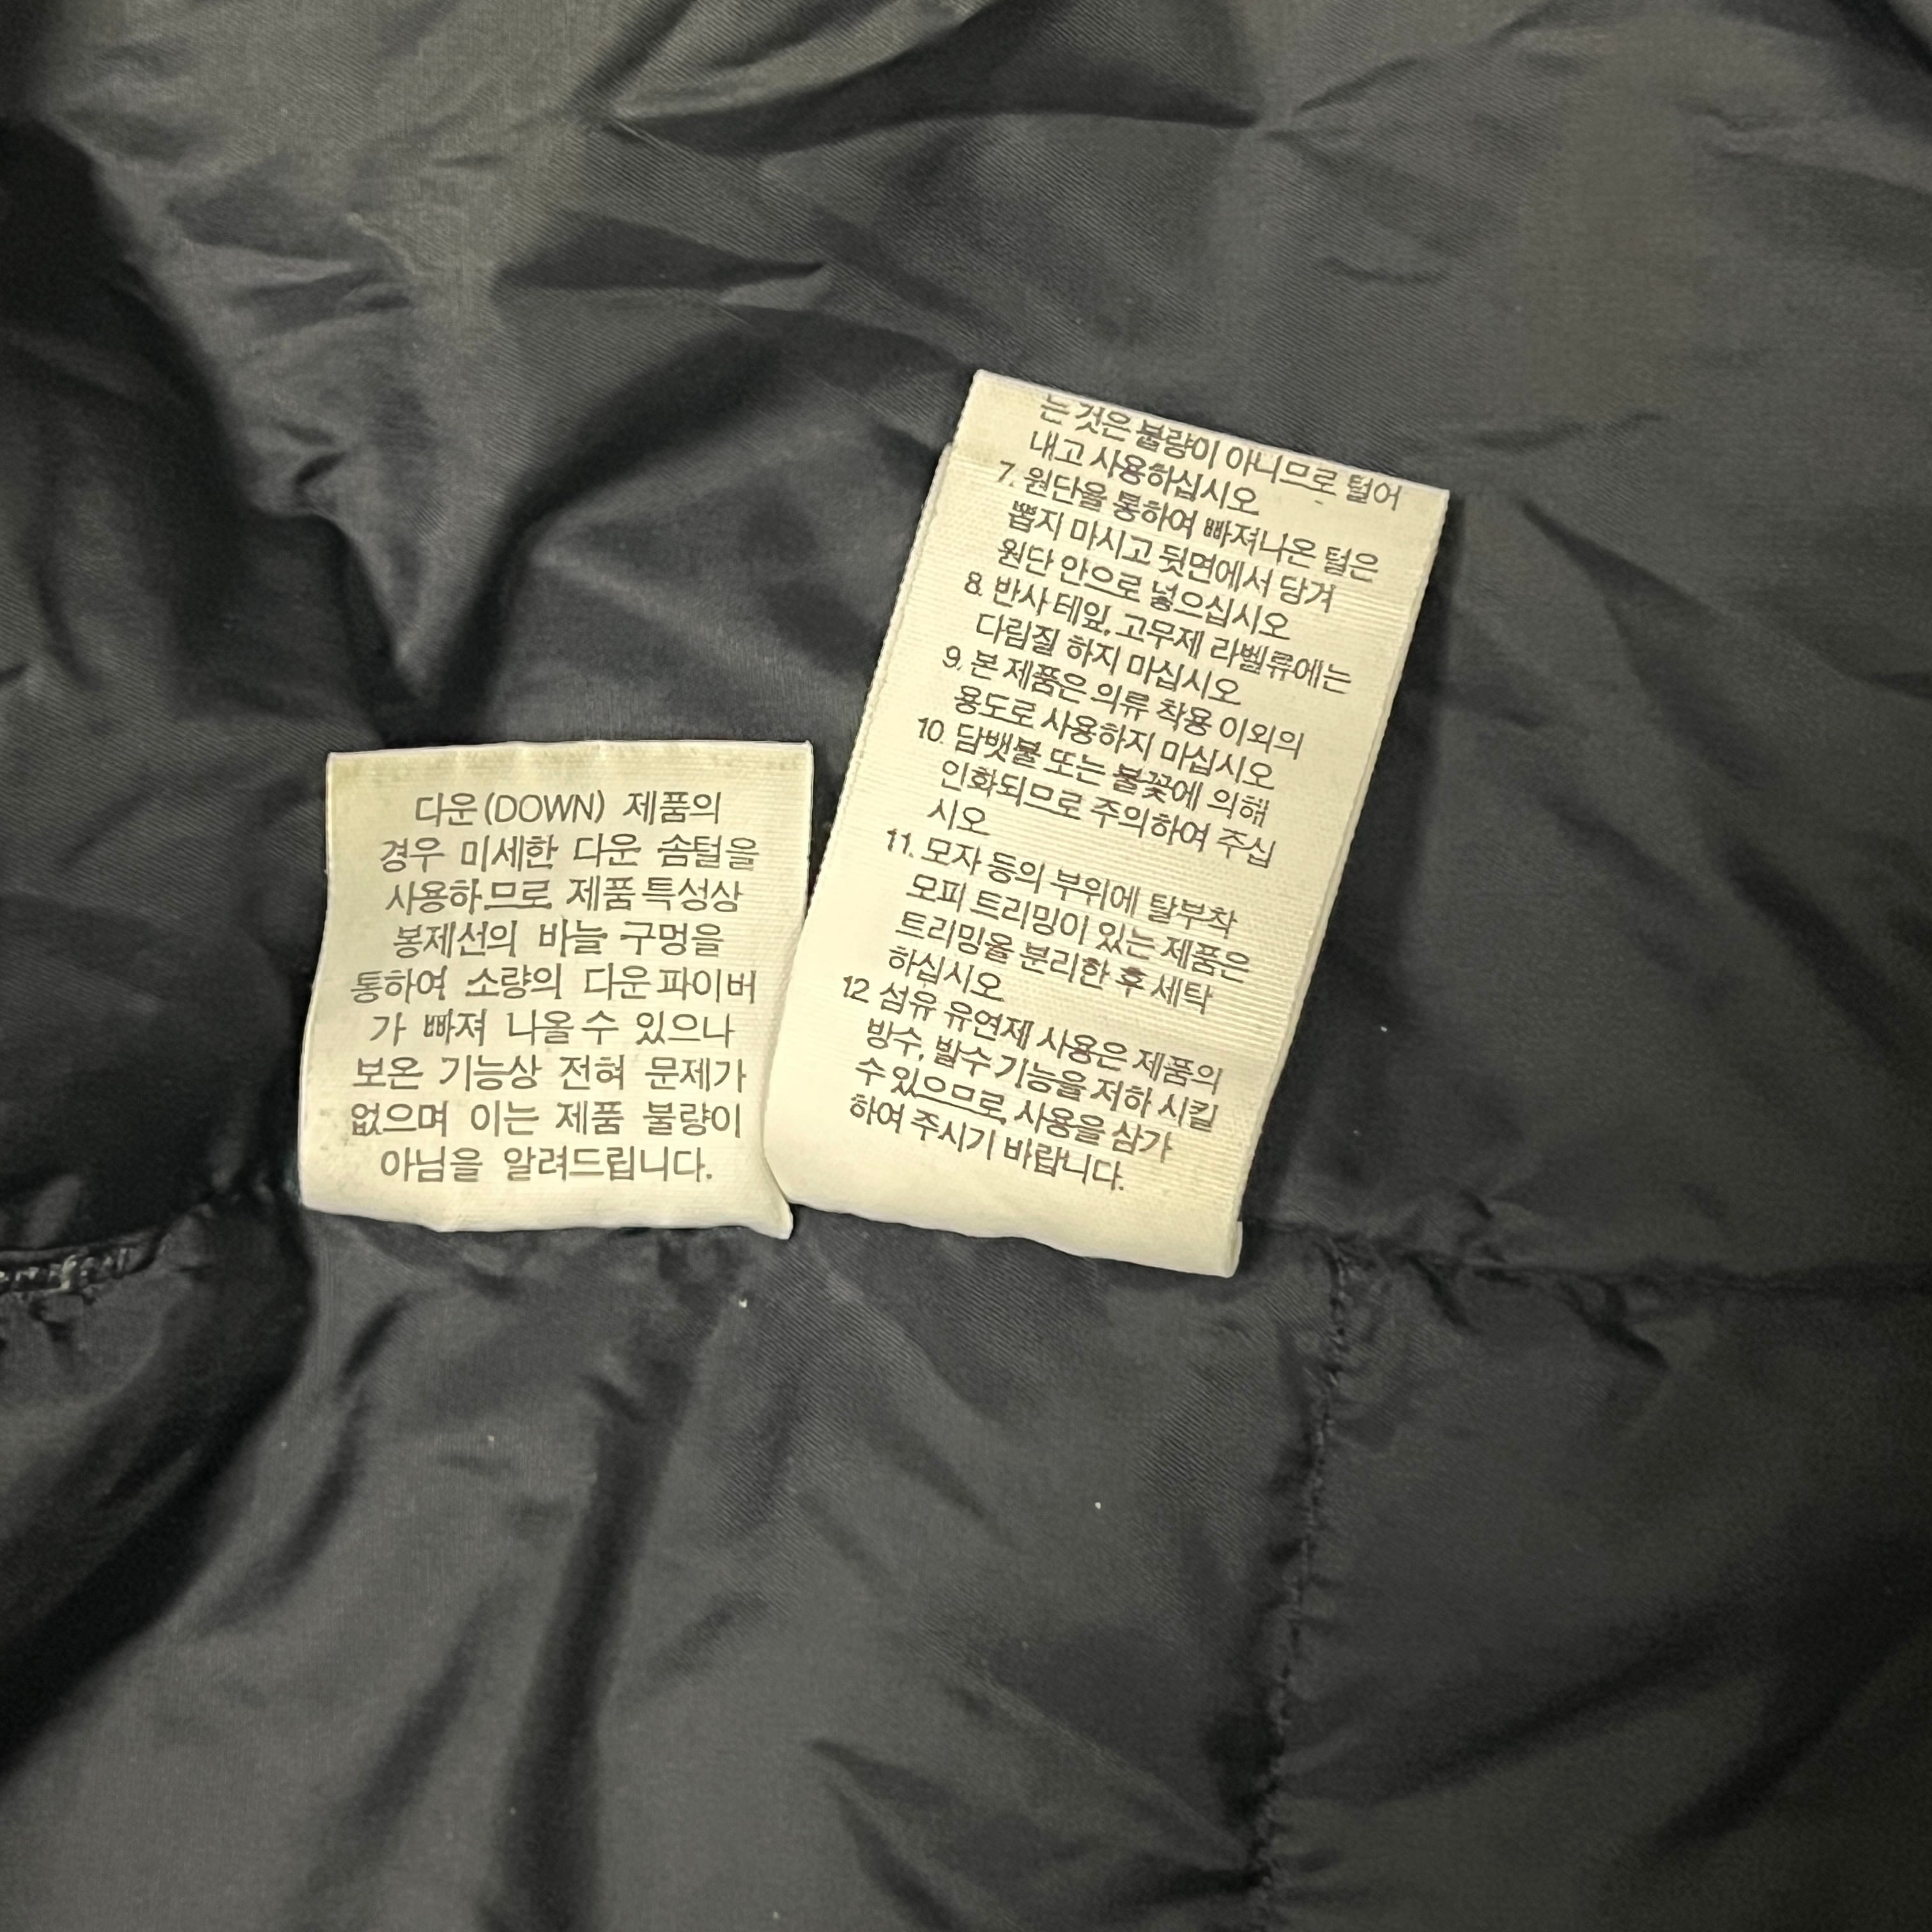 다운(DOWN) 제품의
경우 미세한 다운 솜털을
사용하므로 제품특성상
봉제선의 바늘 구멍을
통하여 소량의 다운파이버
가 빠져 나올수 있으나
보온 기능상 전혀 문제가
없으며 이는 제품 불량이
아님을 알려드립니다.
는 것은 불량이 아니므로 털어
내고 사용하십시오
7. 원단을 통하여 빠져나온 털은
뽑지 마시고 뒷면에서 당겨
원단 안으로 넣으십시오
8. 반사테잎, 고무제 라벨류에는
다림질 하지 마십시오
9. 본 제품은 의류 착용 이외의
용도로 사용하지 마십시오
10. 담뱃불 또는 불꽃에 의해
인화되므로 주의하여 주십
시오
11. 모자 등의 부위에 탈부착
모피 트리밍이 있는 제품은
트리밍을 분리한 후 세탁
하십시오
12. 섬유 유연제 사용은 제품의
방수, 발수 기능을 저하 시킬
수 있으므로, 사용을 삼가
하여 주시기 바랍니다.